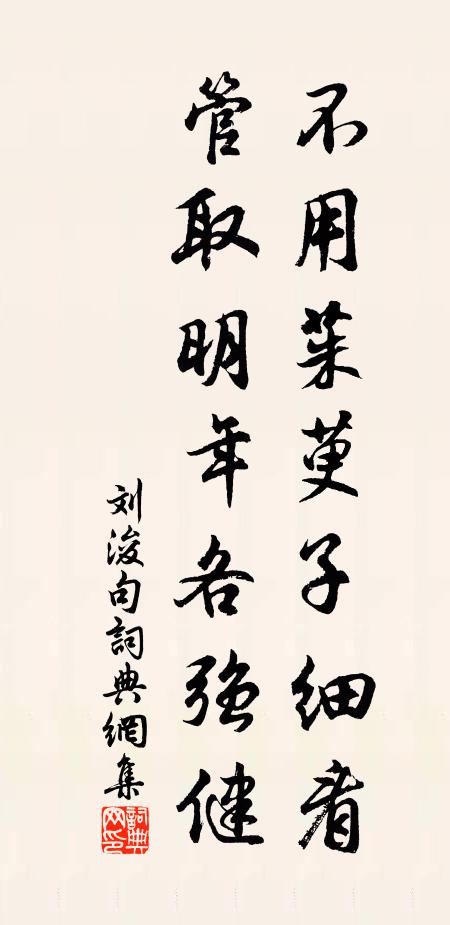 不用茱萸子细看
管取明年各强健
刘浚句詞典網集
詞典
网印